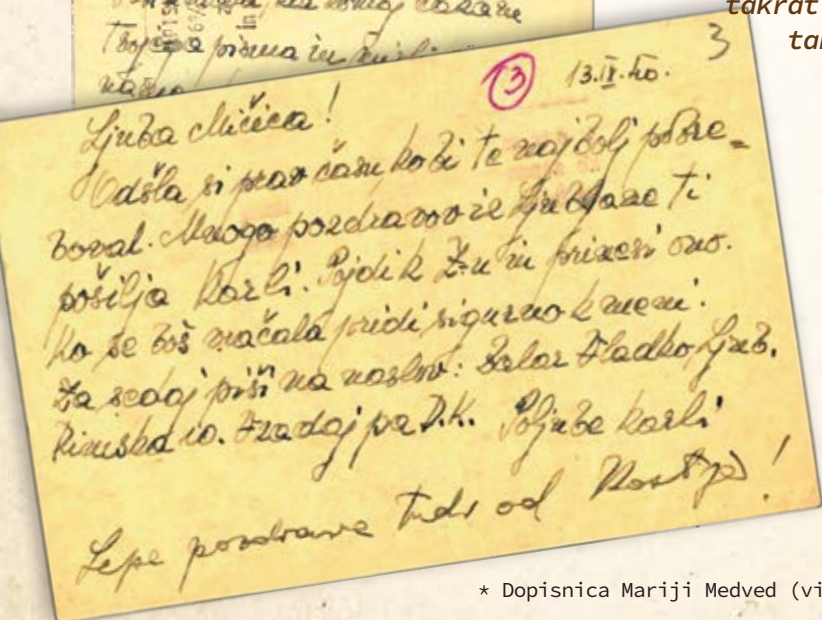 takrat
ta
Tvojega pisma in
3
③ 13.IX.40.
Ljuba Micica!
Odšla si prav času ko bi te najbolj potre=
boval. Mnogo pozdravov iz Ljubljane ti
pošilja Karli. Pojdi k in prinesi ono.
Ko se boš vračala pridi sigurno k meni.
Za sedaj piši na naslov: Vladko, Ljub.
Rimska 10. Zradaj pa D.K. Poljube Karli
Lepe pozdrave tudi od Kostje!
* Dopisnica Mariji Medved (vi